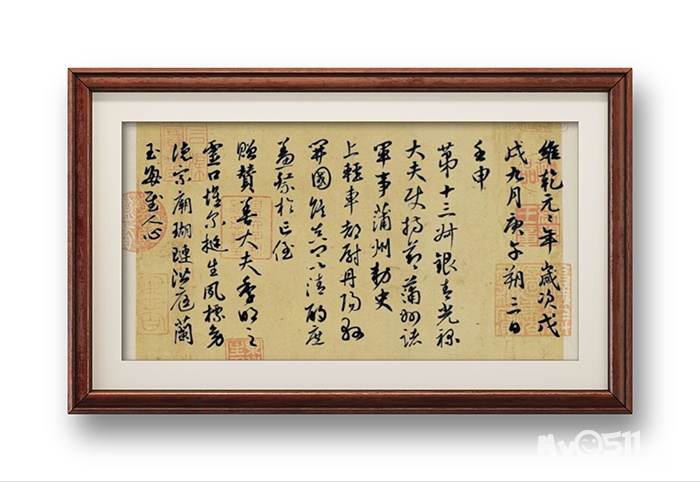 維乾元元年歲次戊
戌九月庚午朔三日
壬申
第十三叔銀青光祿
大夫使持節蒲州諸
軍事蒲州刺史
上輕車都尉丹陽縣
開國侯真卿以清酌庶
羞祭於亡侄
贈贊善大夫季明之
靈曰惟爾挺生夙標幼
德宗廟瑚璉階庭蘭
玉每慰人心
My0511